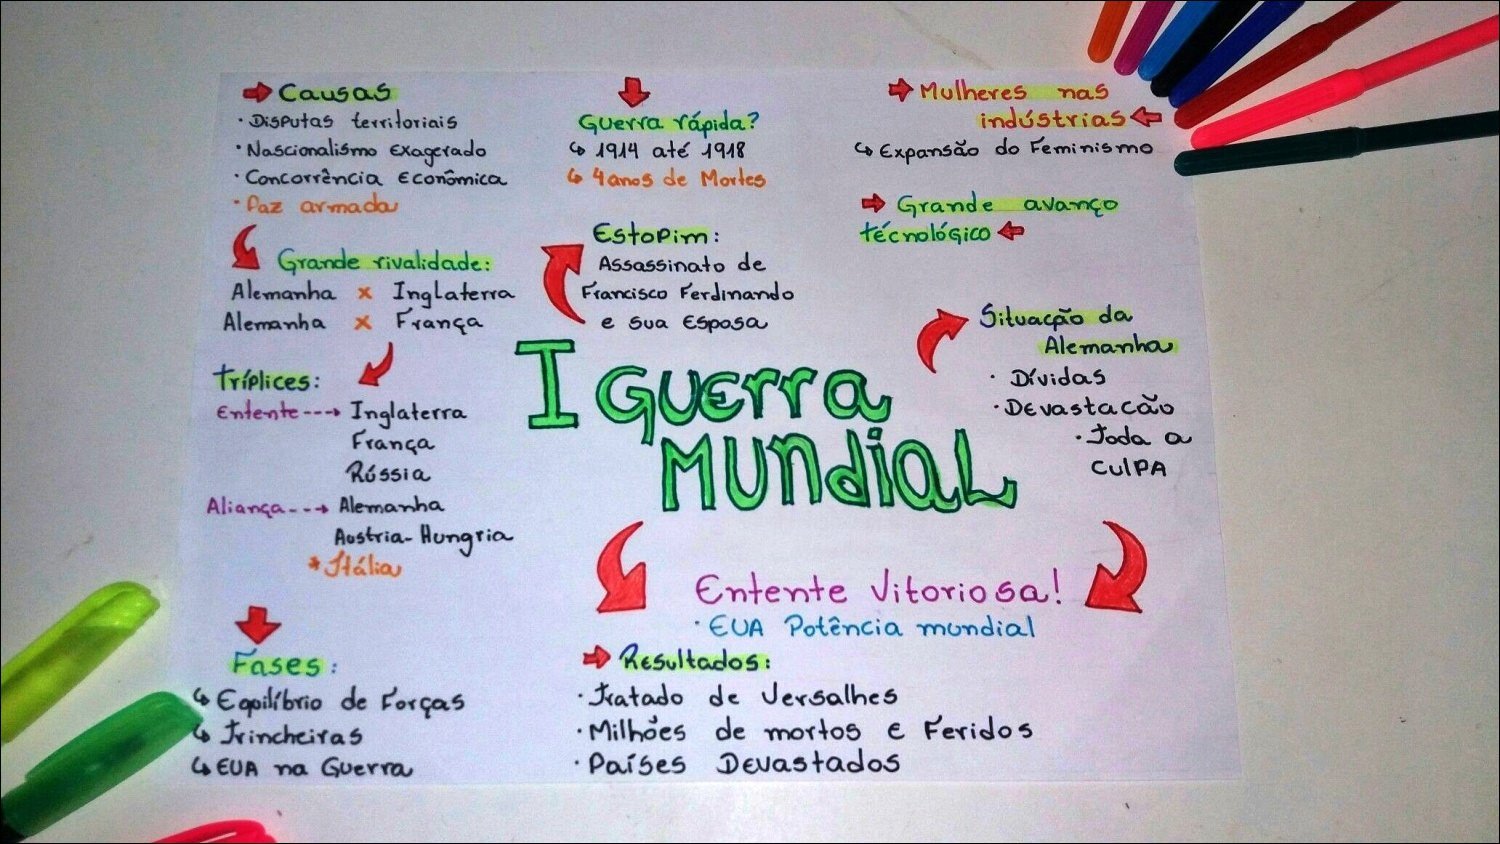 Causas
· Disputas territoriais
· Nascionalismo Exagerado
· Concorrência Econômica
· Paz armada
Grande rivalidade:
Alemanha x Inglaterra
Alemanha x França
Tríplices:
Entente ---→ Inglaterra
França
Rússia
Aliança---→ Alemanha
Austria-Hungria
*Itália
Fases:
↳ Equilíbrio de Forças
↳ Trincheiras
↳ EUA na Guerra
Guerra rápida?
↳ 1914 até 1918
↳ 4 anos de Mortes
Estopim:
Assassinato de
Francisco Ferdinando
e sua Esposa
I GUERRA
MUNDIAL
Entente Vitoriosa!
· EUA Potência mundial
Resultados:
· Tratado de Versalhes
· Milhões de mortos e Feridos
· Países Devastados
Mulheres nas
indústrias
↳ Expansão do Feminismo
Grande avanço
técnológico
Situacção da
Alemanha
· Dívidas
· Devastacão
· Toda a
CulPA